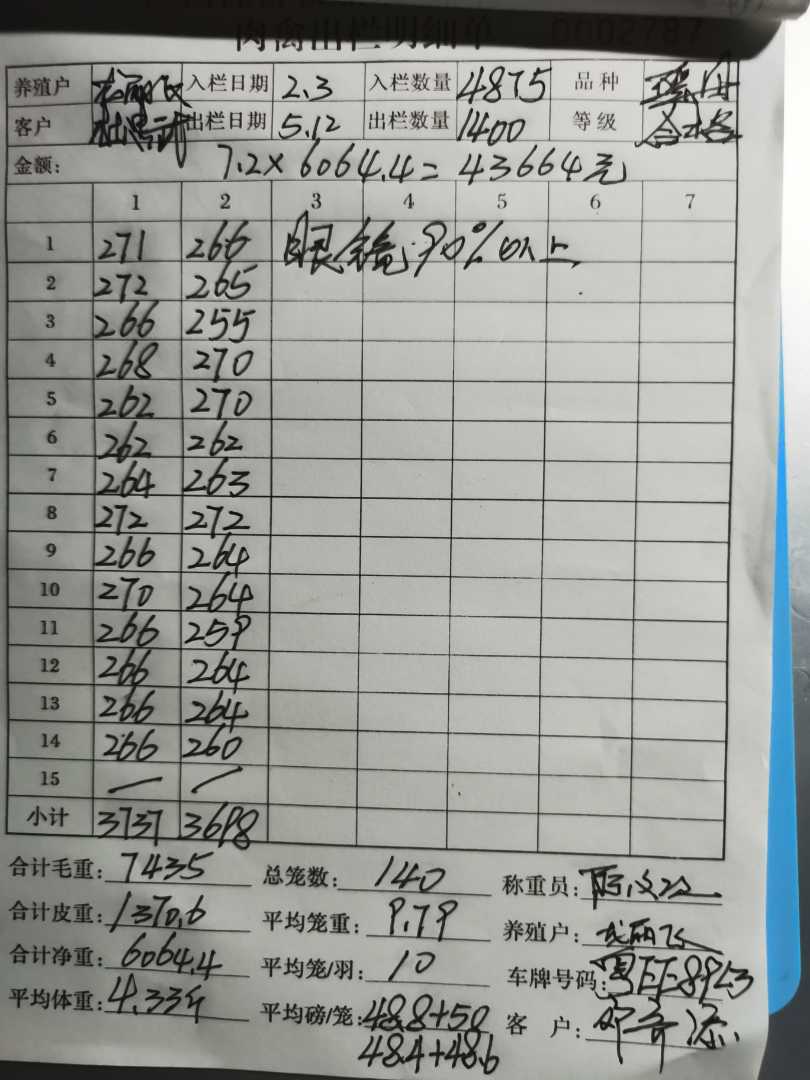 肉禽出栏明细单 0002787
养殖户 入栏日期 2.3 入栏数量 4875 品种
客户 出栏日期 5.12 出栏数量 1400 等级 合格
金额: 7.2×6064.4=43664元
1 2 3 4 5 6 7
1 271 266 眼镜90%以上
2 272 265
3 266 255
4 268 270
5 262 270
6 262 262
7 264 263
8 272 272
9 266 264
10 270 264
11 266 259
12 266 264
13 266 264
14 266 260
15 — —
小计 3737 3698
合计毛重: 7435 总笼数: 140 称重员:
合计皮重: 1370.6 平均笼重: 9.79 养殖户:
合计净重: 6064.4 平均笼/羽: 10 车牌号码:
平均体重: 4.33斤 平均磅/笼: 48.8+50 客 户:
48.4+48.6